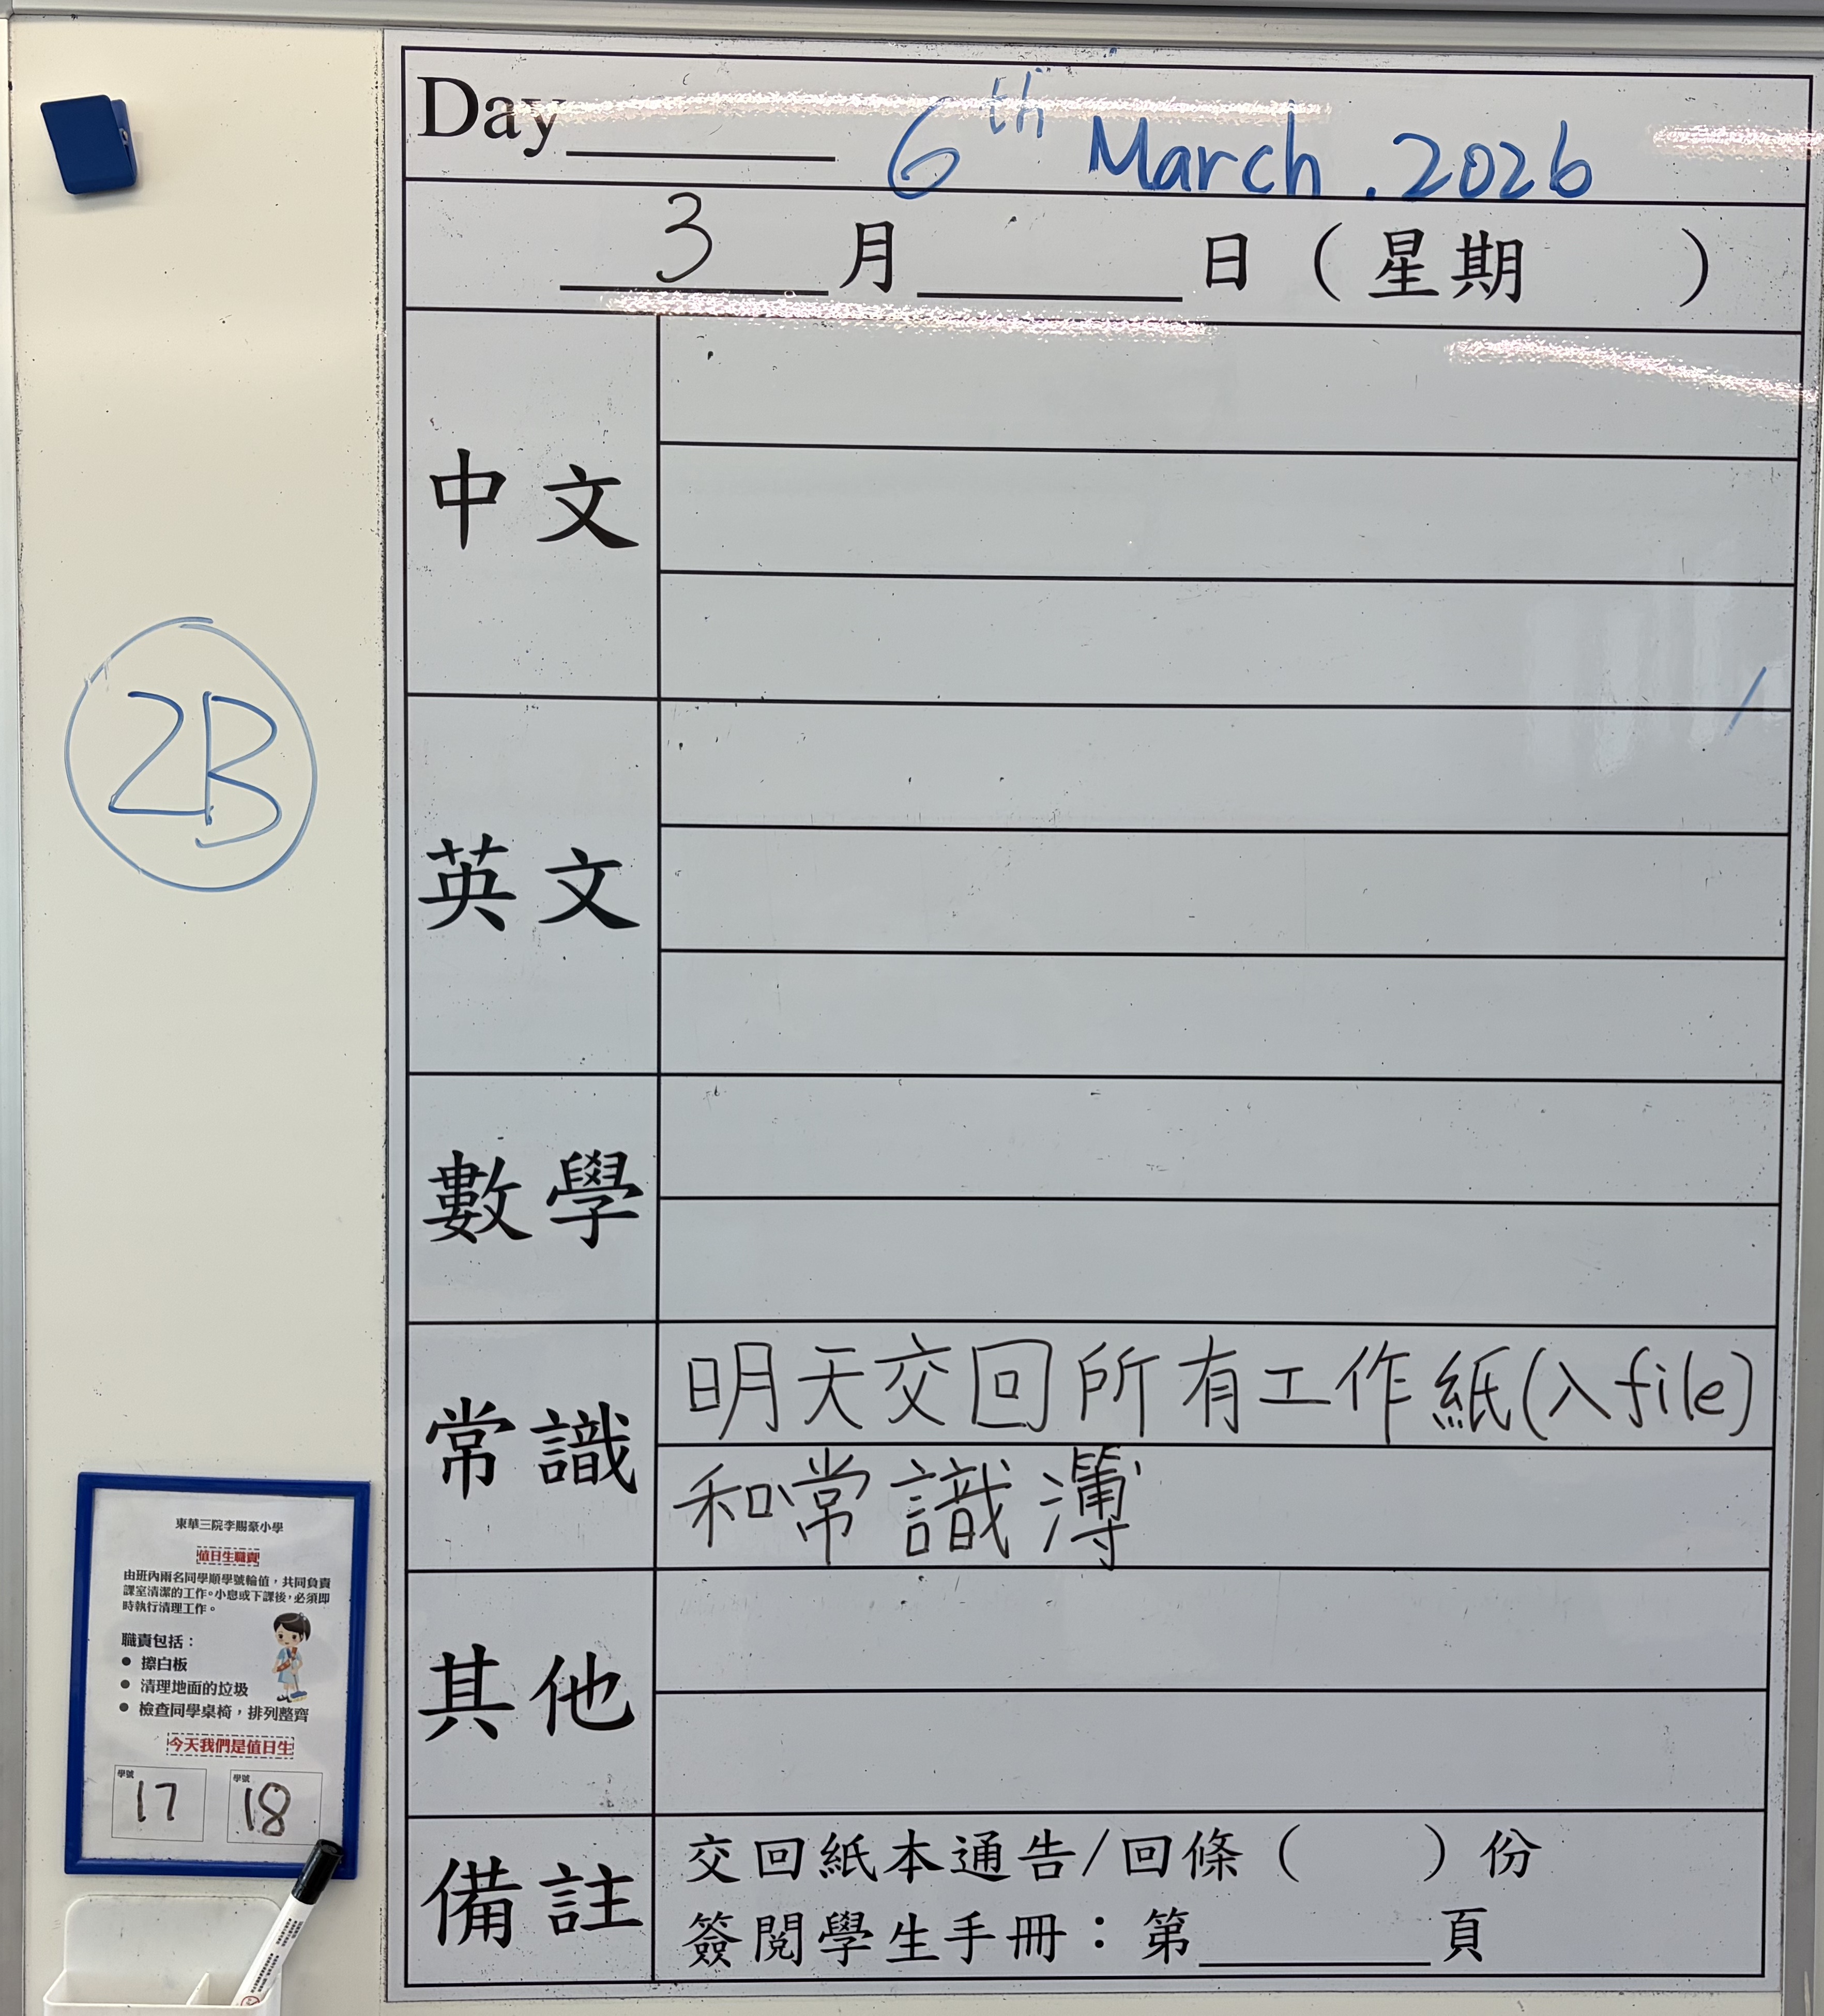 Day______ 6th March. 2026
3 月______日（星期　　）
中文
英文
數學
常識
明天交回所有工作紙(入file)
和常識簿
其他
備註
交回紙本通告/回條（　　）份
簽閱學生手冊：第______頁
2B
東華三院李賜豪小學
值日生職責
由班內兩名同學順學號輪值，共同負責
課室清潔的工作。小息或下課後，必須即
時執行清理工作。
職責包括：
● 擦白板
● 清理地面的垃圾
● 檢查同學桌椅，排列整齊
今天我們是值日生
學號 17 學號 18